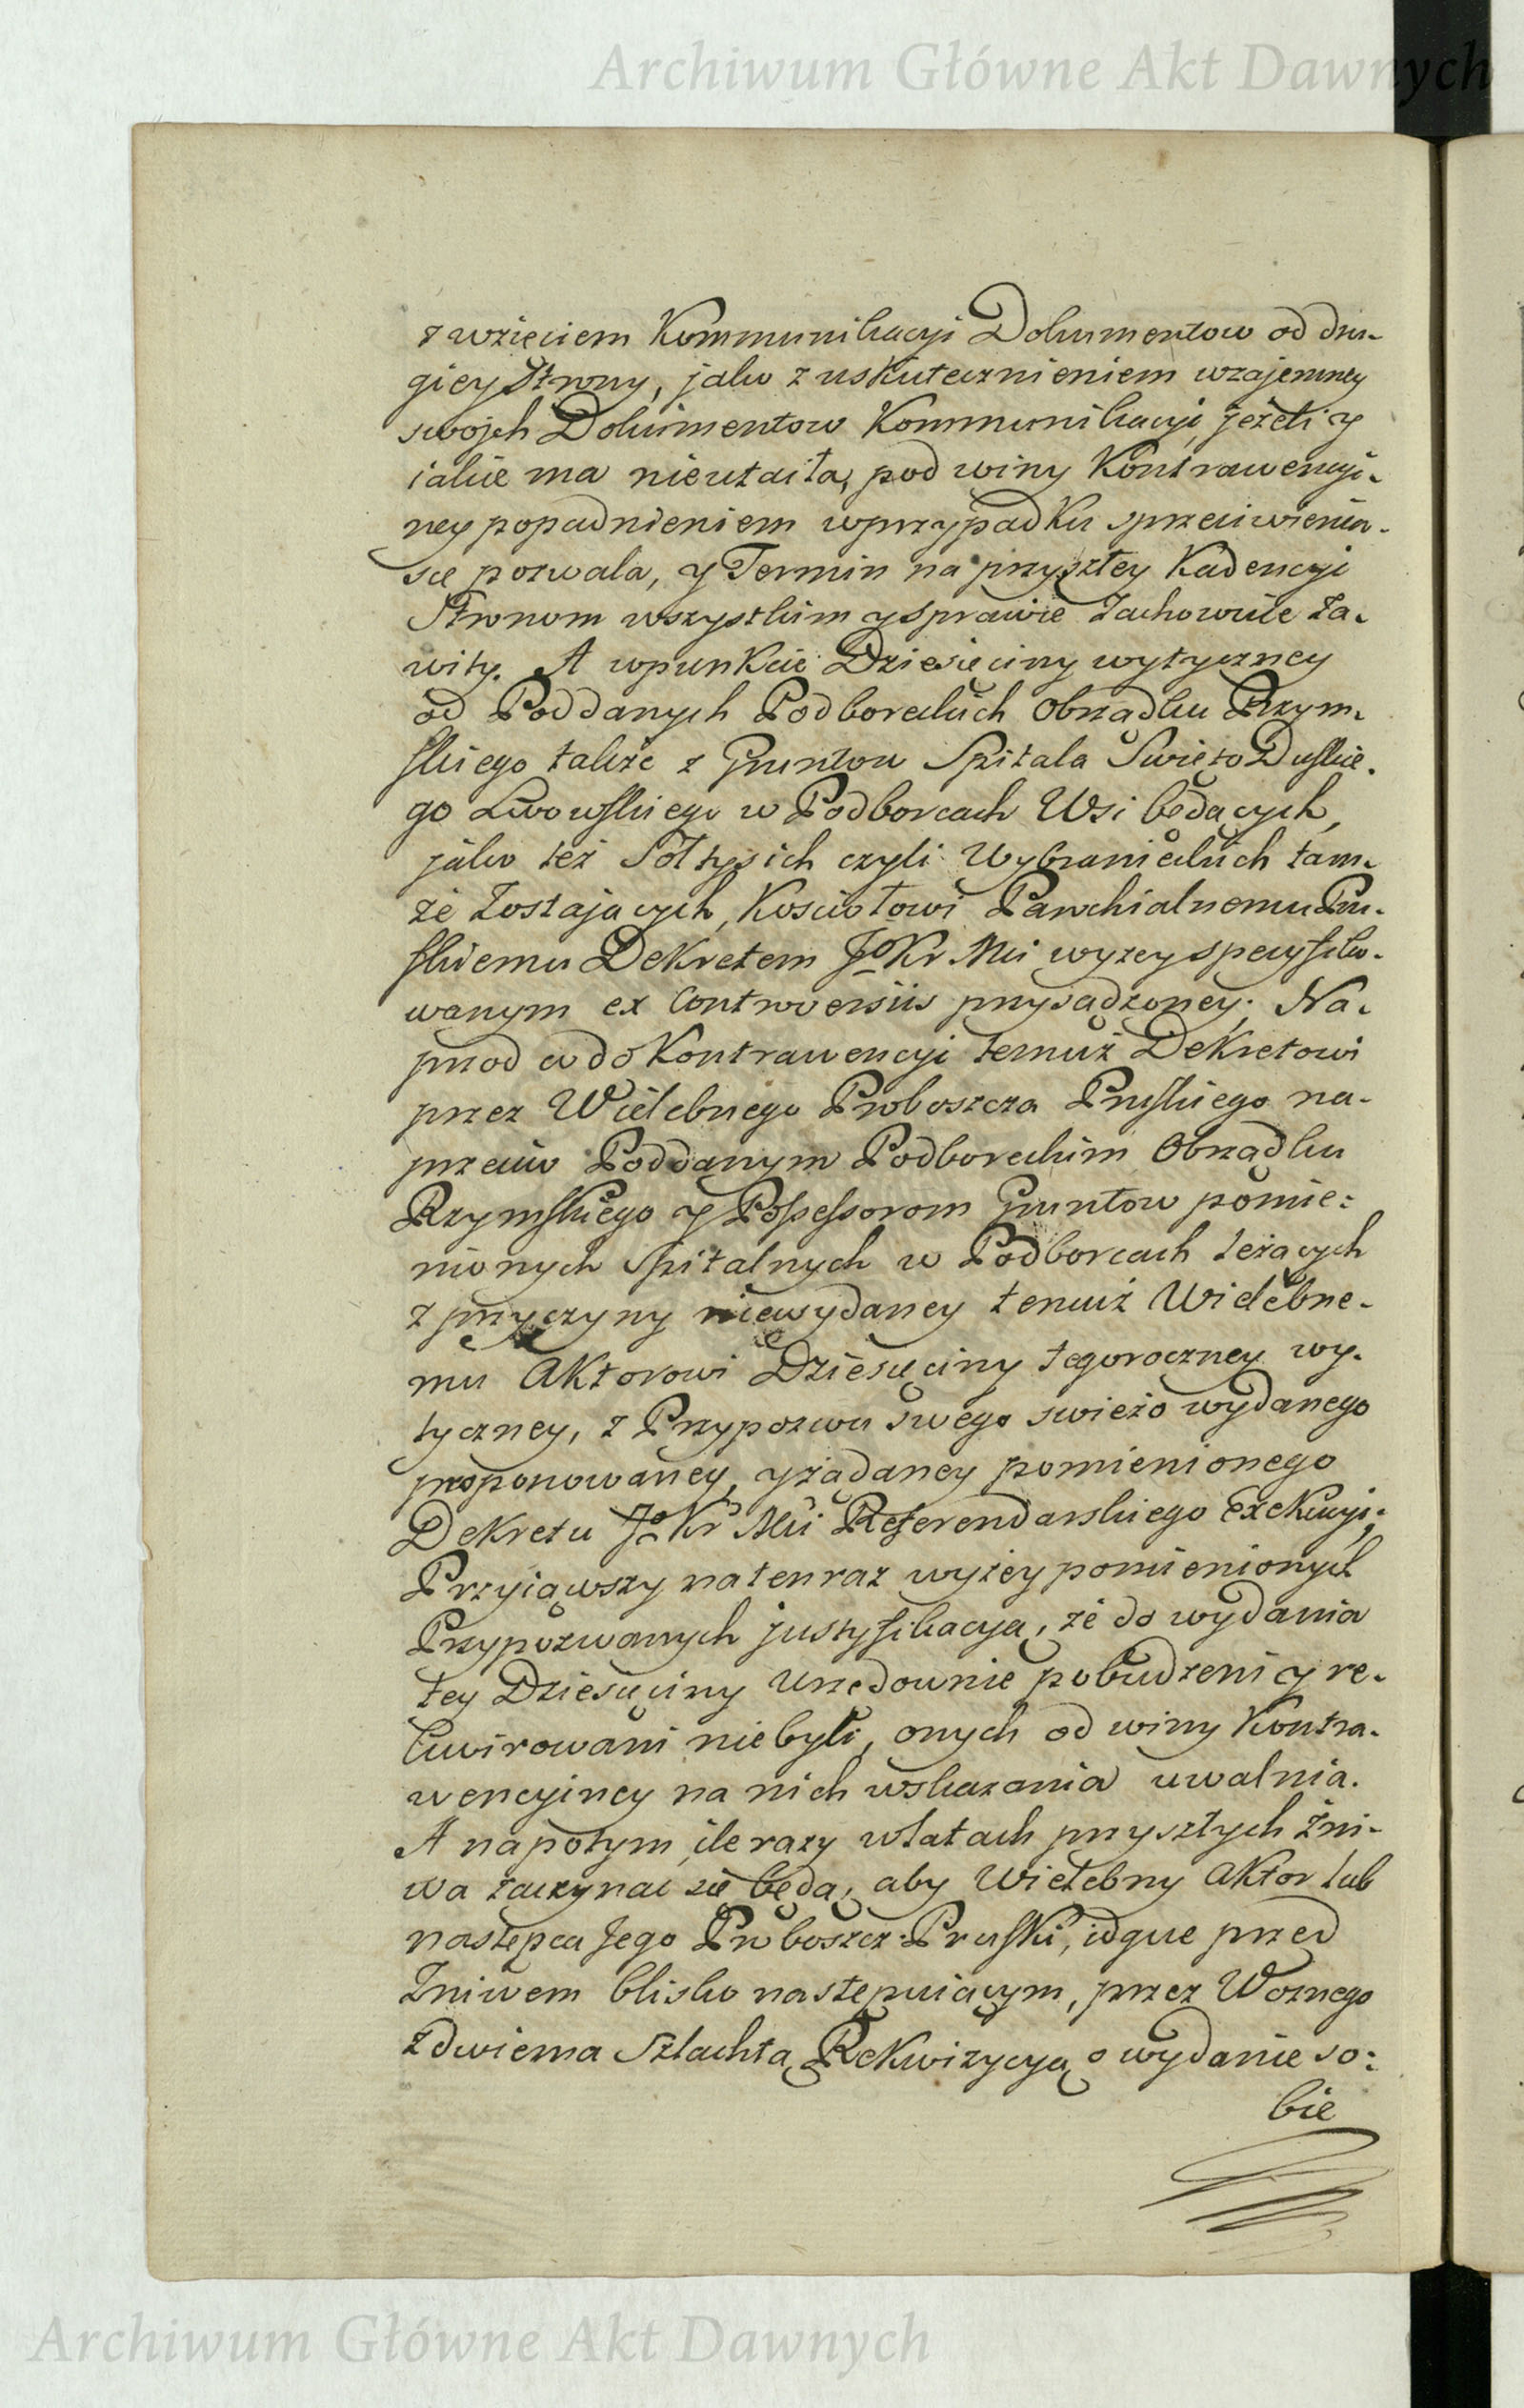 Archiwum Główne Akt Dawnych
z wzięciem Kommunikacyi Dokumentow od dru-
giey Strony, jako z uskutecznieniem wzajemney
swojch Dokumentow Kommunikacyi, jeżeli y
iakie ma nieutaiła, pod winy Kontrawencyi-
ney popadnieniem wprzypadku sprzeciwienia-
się pozwala, y Termin na przyszłey Kadencyi
Stronom wszystkim y sprawie zachowuie za-
wity. A wpunkcie Dziesięciny wytyczney
od Poddanych Podboreckich Obrządku Rzym-
skiego także z Gruntow Szpitala Swięto Duskie-
go Lwowskiego w Podborcach Wsi będących,
jako też Sołtysich czyli Wybranieckich tam-
że zostających, Kosciołowi Parochialnemu Pru-
skiemu Dekretem Jo Kr Mci wyzey specyfiko-
wanym ex Controversiis przysądzoney. Na-
przod co do Kontrawencyi temuż Dekretowi
przez Wielebnego Proboszcza Pruskiego na-
przeciw Poddanym Podboreckim Obrządku
Rzymskiego y Possessorom Gruntow pomie-
nionych Szpitalnych w Podborcach leżących
z przyczyny niewydaney temuż Wielebne-
mu Aktorowi Dziesięciny tegoroczney wy-
tyczney, z Przypozwu swego swieżo wydanego
proponowaney, y żądaney pomienionego
Dekretu Jo Kr Mci Referendarskiego Exekucyi;
Przyiąwszy natenraz wyżey pomienionych
Przypozwanych justyfikacyą, że do wydania
tey Dziesięciny Urzędownie pobudzeni y re-
kwirowani niebyli, onych od winy Kontra-
wencyiney na nich wskazania uwalnia.
A napotym ile razy wlatach przyszłych żni-
wa zaczynac się będą, aby Wielebny Aktor lub
następca Jego Proboszcz Pruski, idque przed
Żniwem blisko następuiącym, przez Woznego
zdwiema Szlachtą Rekwizycyą o wydanie so-
bie
Archiwum Główne Akt Dawnych